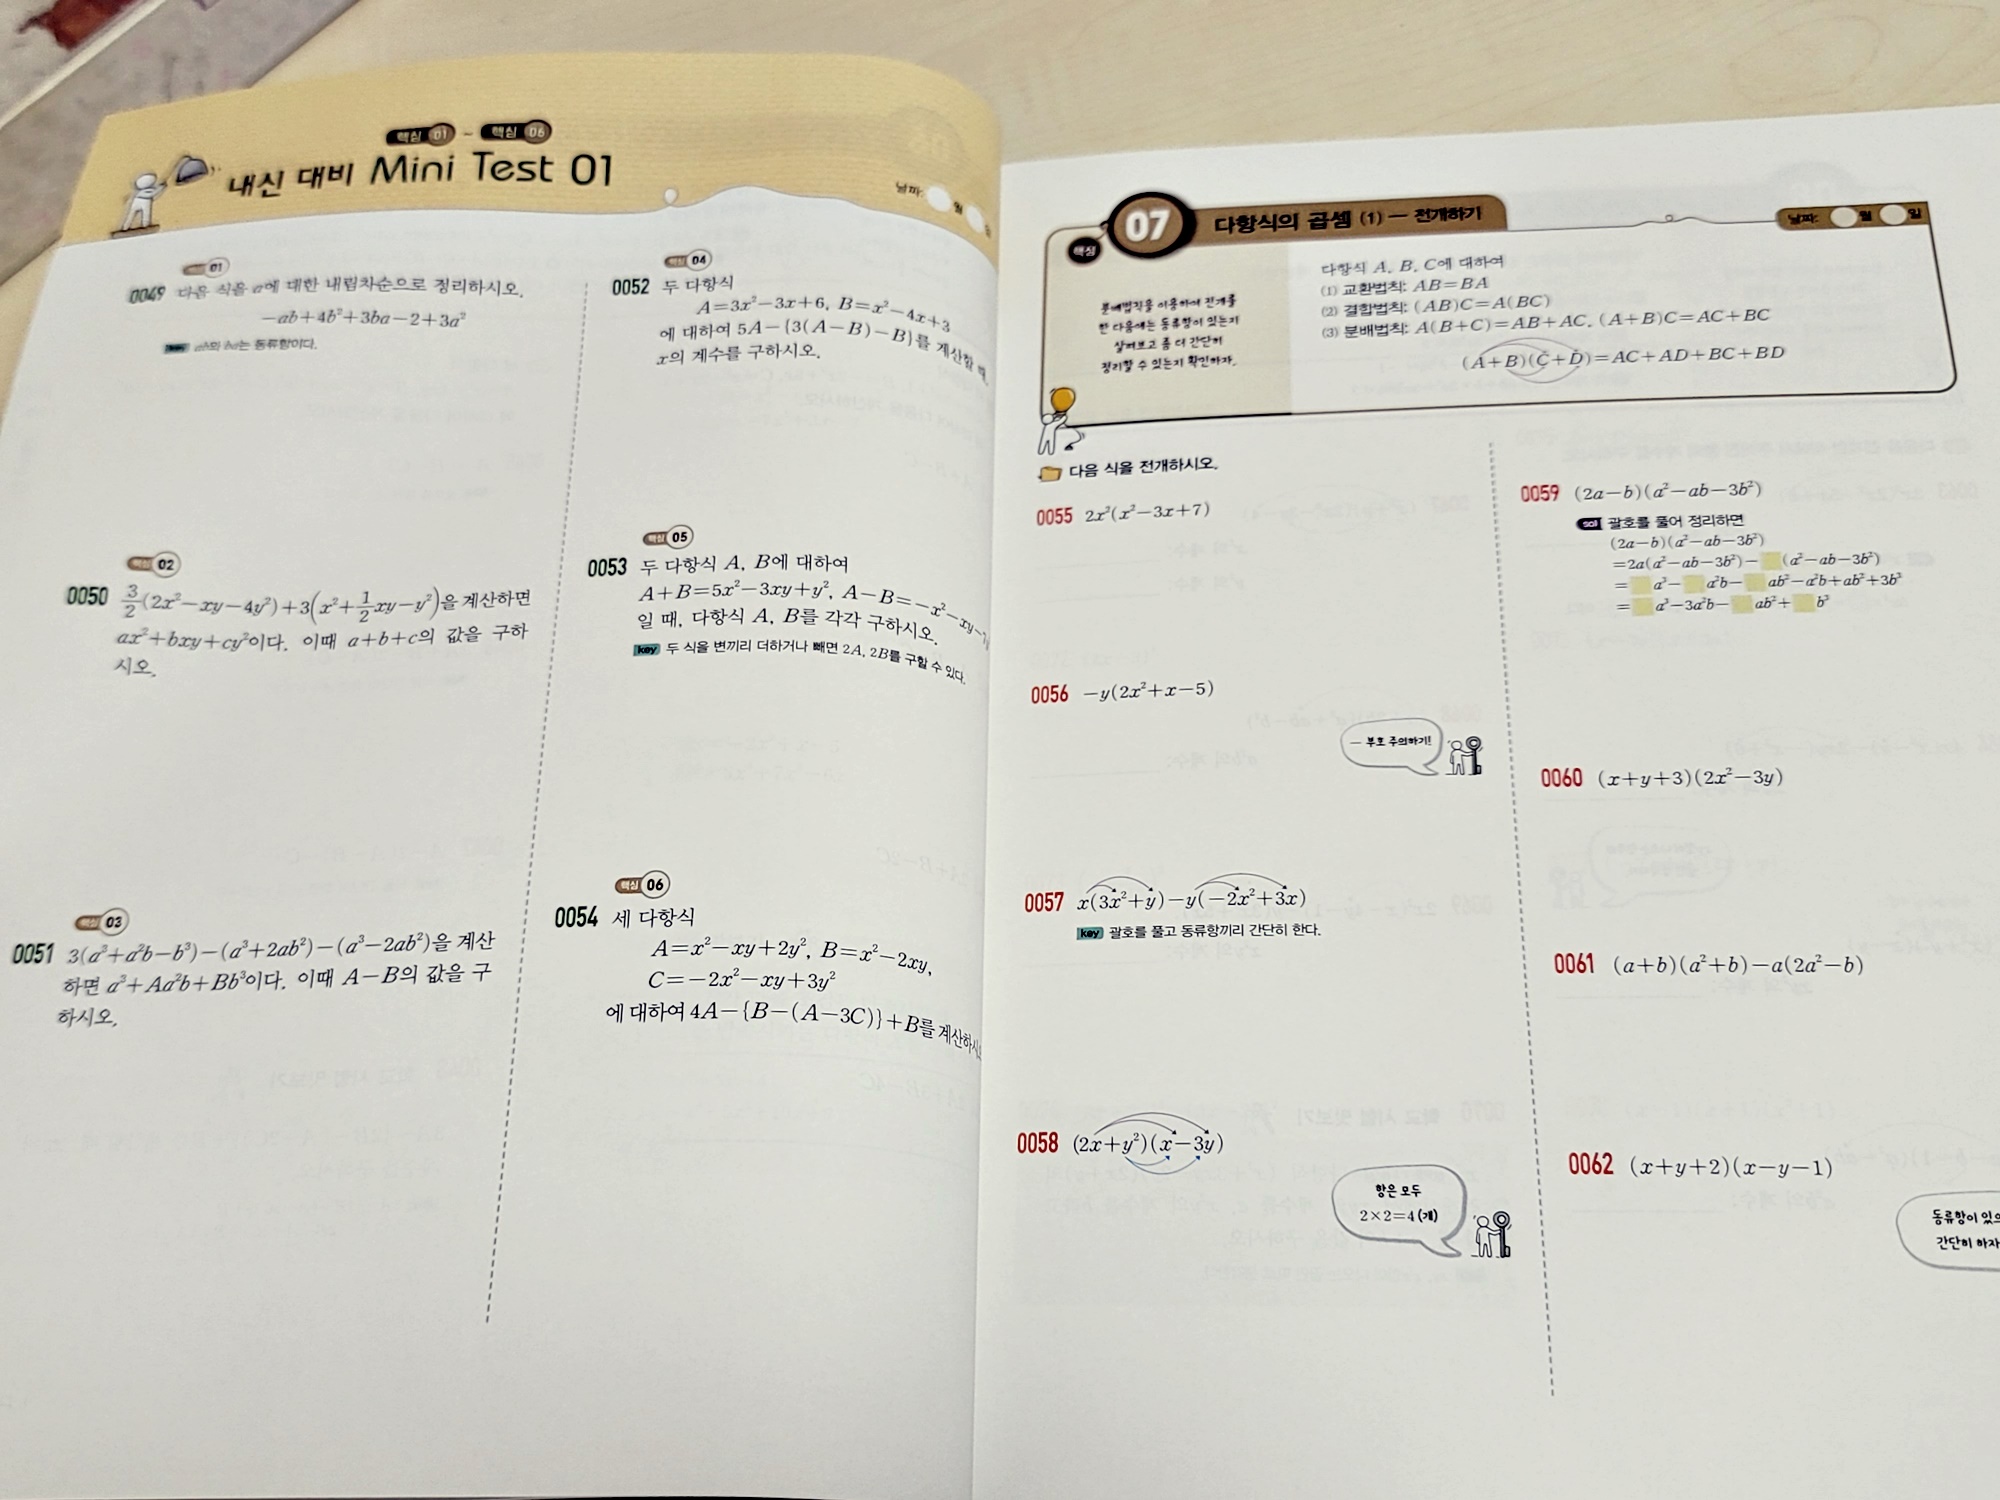 핵심 01 ~ 핵심 06
내신 대비 Mini Test 01
날짜: 월 일
핵심 01
0049 다음 식을 a에 대한 내림차순으로 정리하시오.
-ab+4b²+3ba-2+3a²
key ab와 ba는 동류항이다.
핵심 02
0050 3/2(2x²-xy-4y²)+3(x²+1/2xy-y²)을 계산하면
ax²+bxy+cy²이다. 이때 a+b+c의 값을 구하
시오.
핵심 03
0051 3(a³+a²b-b³)-(a³+2ab²)-(a³-2ab²)을 계산
하면 a³+Aa²b+Bb³이다. 이때 A-B의 값을 구
하시오.
핵심 04
0052 두 다항식
A=3x²-3x+6, B=x²-4x+3
에 대하여 5A-{3(A-B)-B}를 계산할 때,
x의 계수를 구하시오.
핵심 05
0053 두 다항식 A, B에 대하여
A+B=5x²-3xy+y², A-B=-x²-xy-7
일 때, 다항식 A, B를 각각 구하시오.
key 두 식을 변끼리 더하거나 빼면 2A, 2B를 구할 수 있다.
핵심 06
0054 세 다항식
A=x²-xy+2y², B=x²-2xy,
C=-2x²-xy+3y²
에 대하여 4A-{B-(A-3C)}+B를 계산하시오
핵심 07 다항식의 곱셈 (1) — 전개하기
날짜: 월 일
분배법칙을 이용하여 전개를
한 다음에는 동류항이 있는지
살펴보고 좀 더 간단히
정리할 수 있는지 확인하자.
다항식 A, B, C에 대하여
(1) 교환법칙: AB=BA
(2) 결합법칙: (AB)C=A(BC)
(3) 분배법칙: A(B+C)=AB+AC, (A+B)C=AC+BC
(A+B)(C+D)=AC+AD+BC+BD
다음 식을 전개하시오.
0055 2x²(x²-3x+7)
0056 -y(2x²+x-5)
— 부호 주의하기!
0057 x(3x²+y)-y(-2x²+3x)
key 괄호를 풀고 동류항끼리 간단히 한다.
0058 (2x+y²)(x-3y)
항은 모두
2×2=4(개)
0059 (2a-b)(a²-ab-3b²)
sol 괄호를 풀어 정리하면
(2a-b)(a²-ab-3b²)
=2a(a²-ab-3b²)- (a²-ab-3b²)
= a³- a²b- ab²-a²b+ab²+3b³
= a³-3a²b- ab²+ b³
0060 (x+y+3)(2x²-3y)
0061 (a+b)(a²+b)-a(2a²-b)
0062 (x+y+2)(x-y-1)
동류항이 있으
간단히 하자